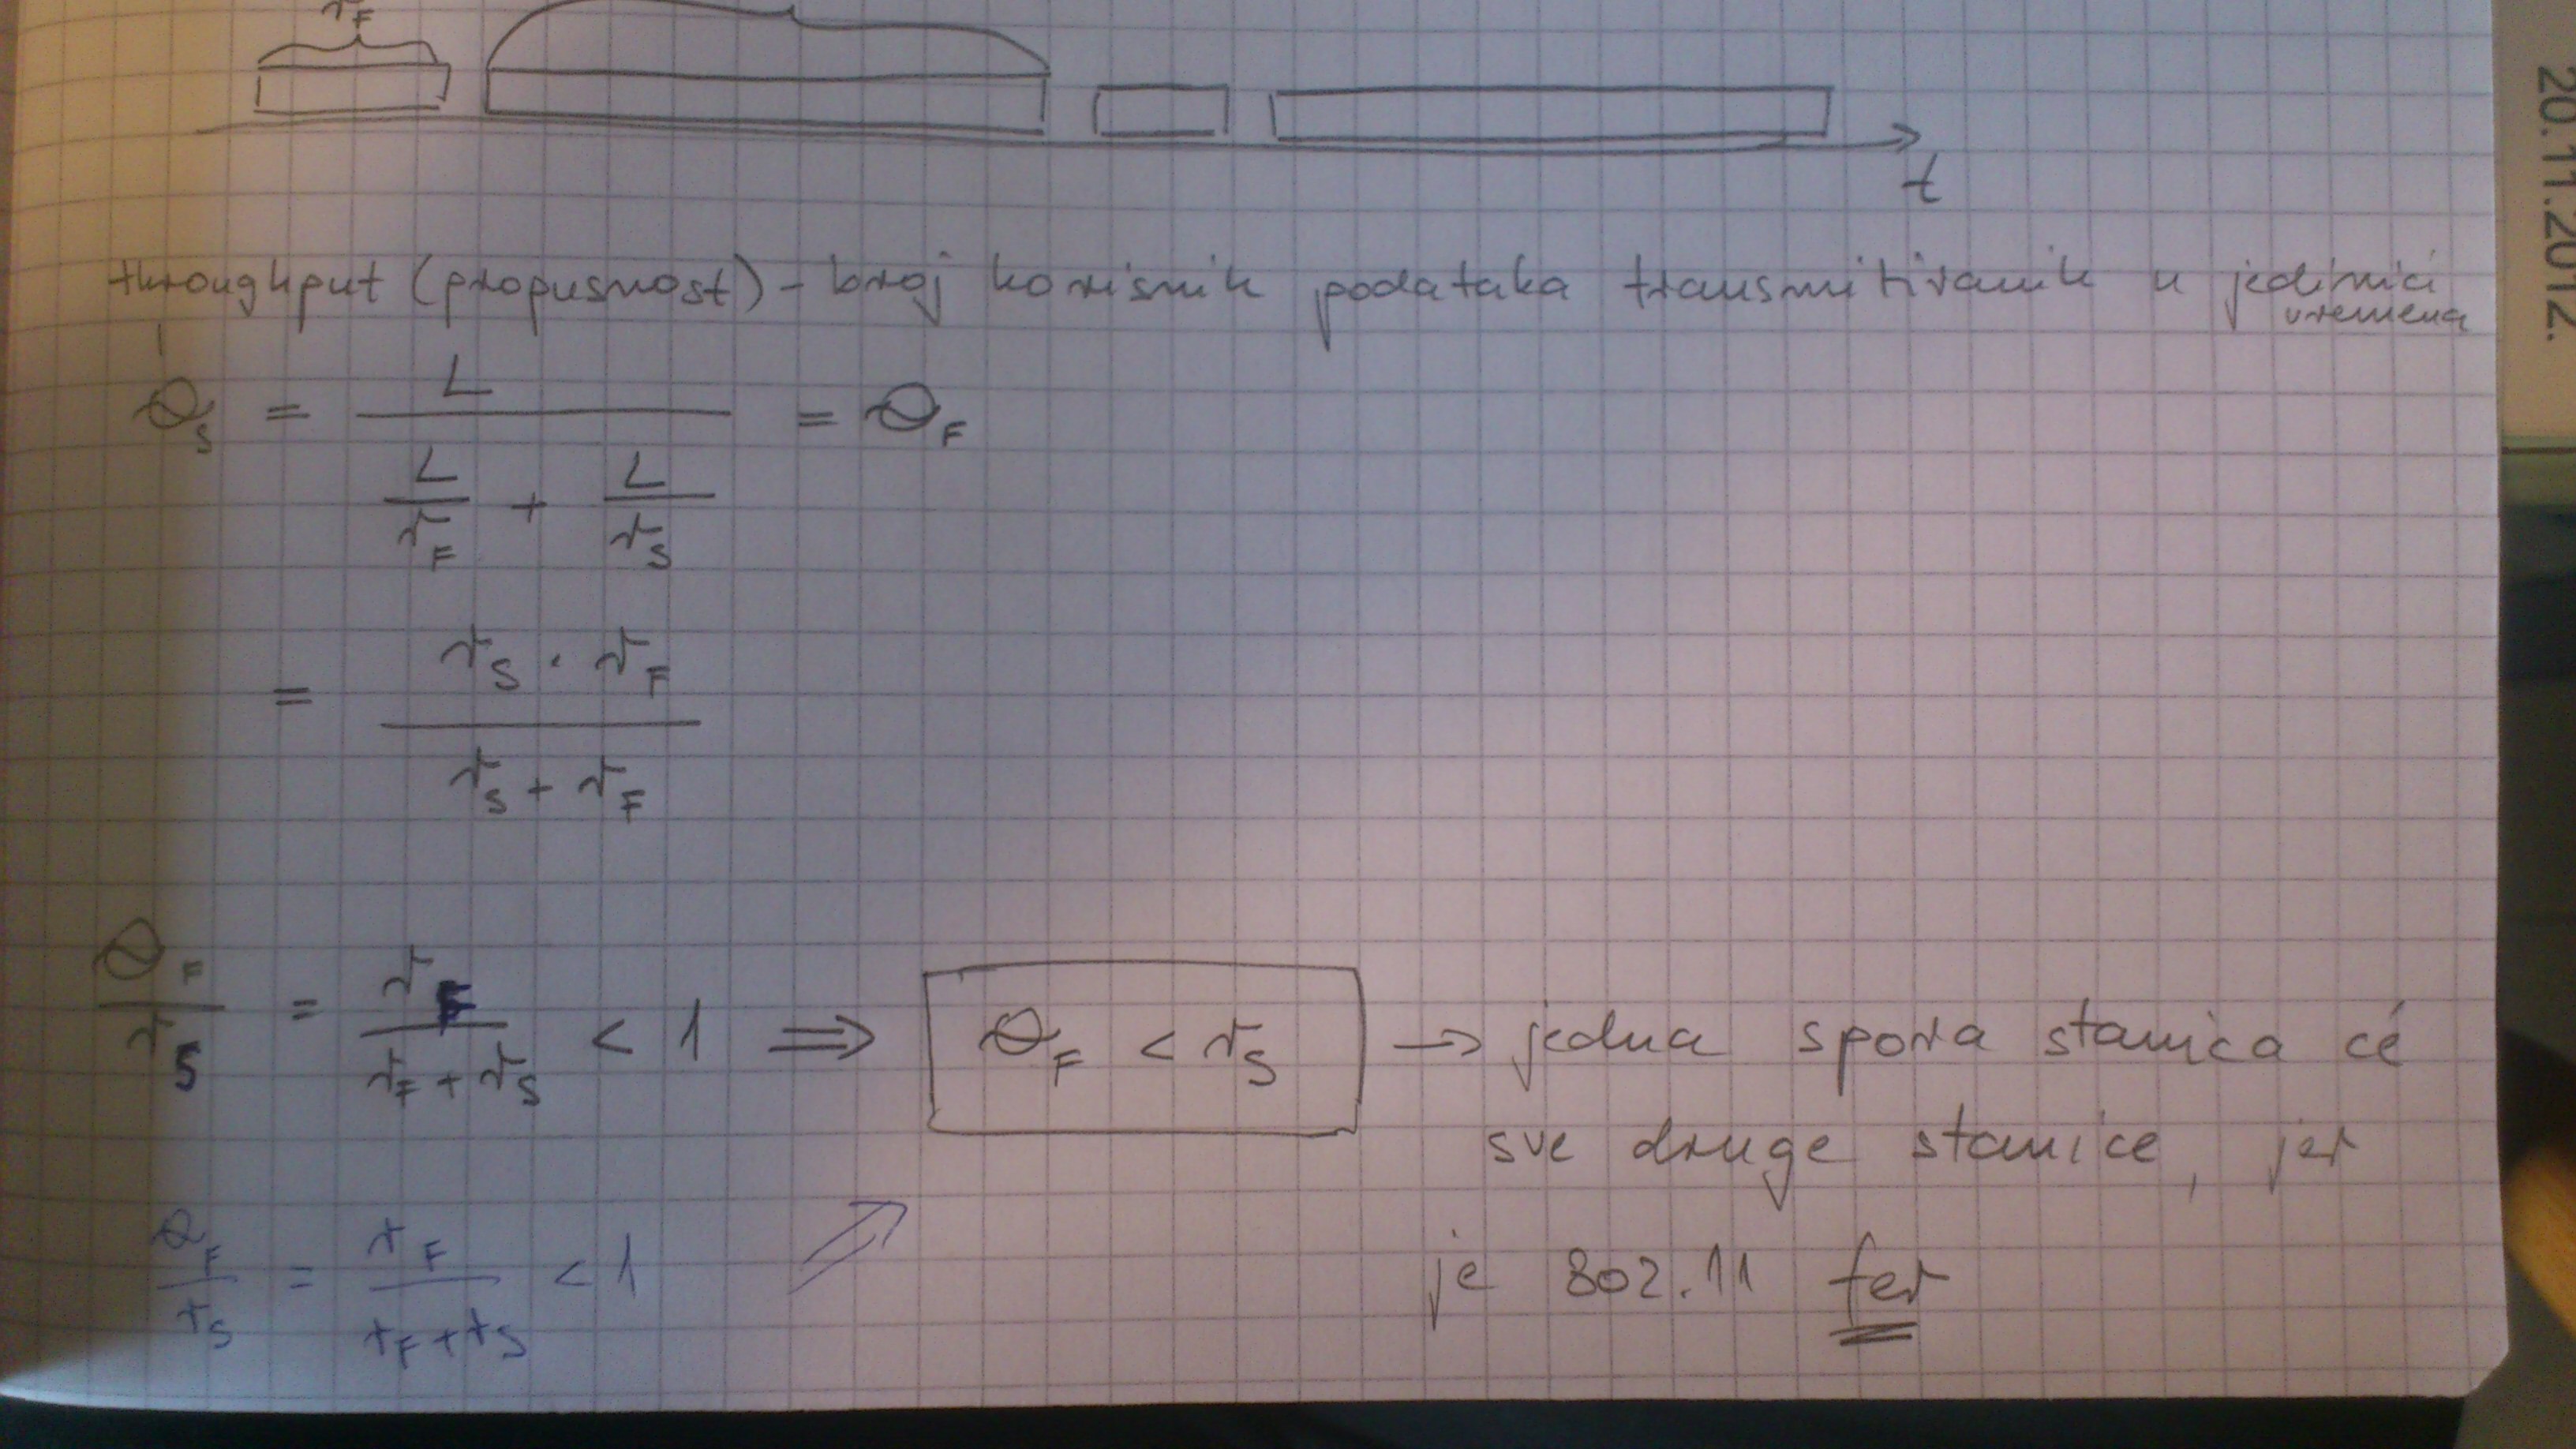 r_F
t
throughput (propusnost) - broj korisnih podataka transmitiranih u jedinici vremena
Θ_S = L / (L/r_F + L/r_S) = Θ_F
= r_S · r_F / (r_S + r_F)
Θ_F / r_S = r_F / (r_F + r_S) < 1 ⇒ Θ_F < r_S → jedna spora stanica će
sve druge stanice, jer
Θ_F / r_S = r_F / (r_F + r_S) < 1
je 802.11 fer
20.11.2012.